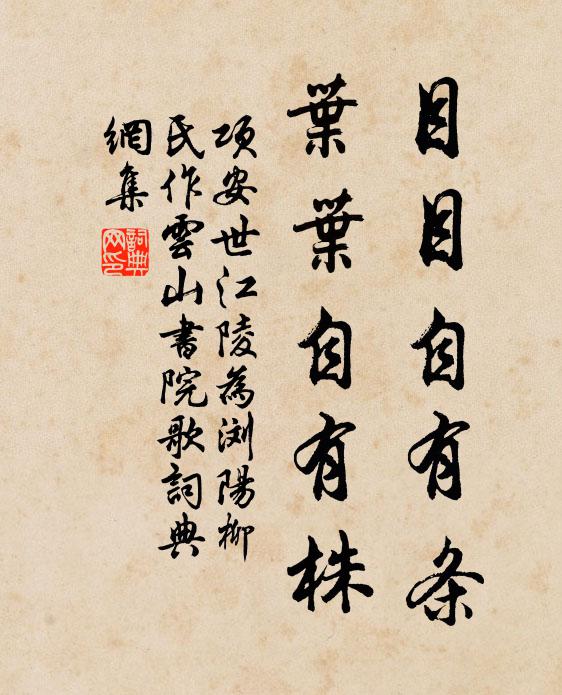 目目自有条
葉葉自有株
项安世江陵為浏陽柳
氏作雲山書院歌詞典
網集
詞典网印